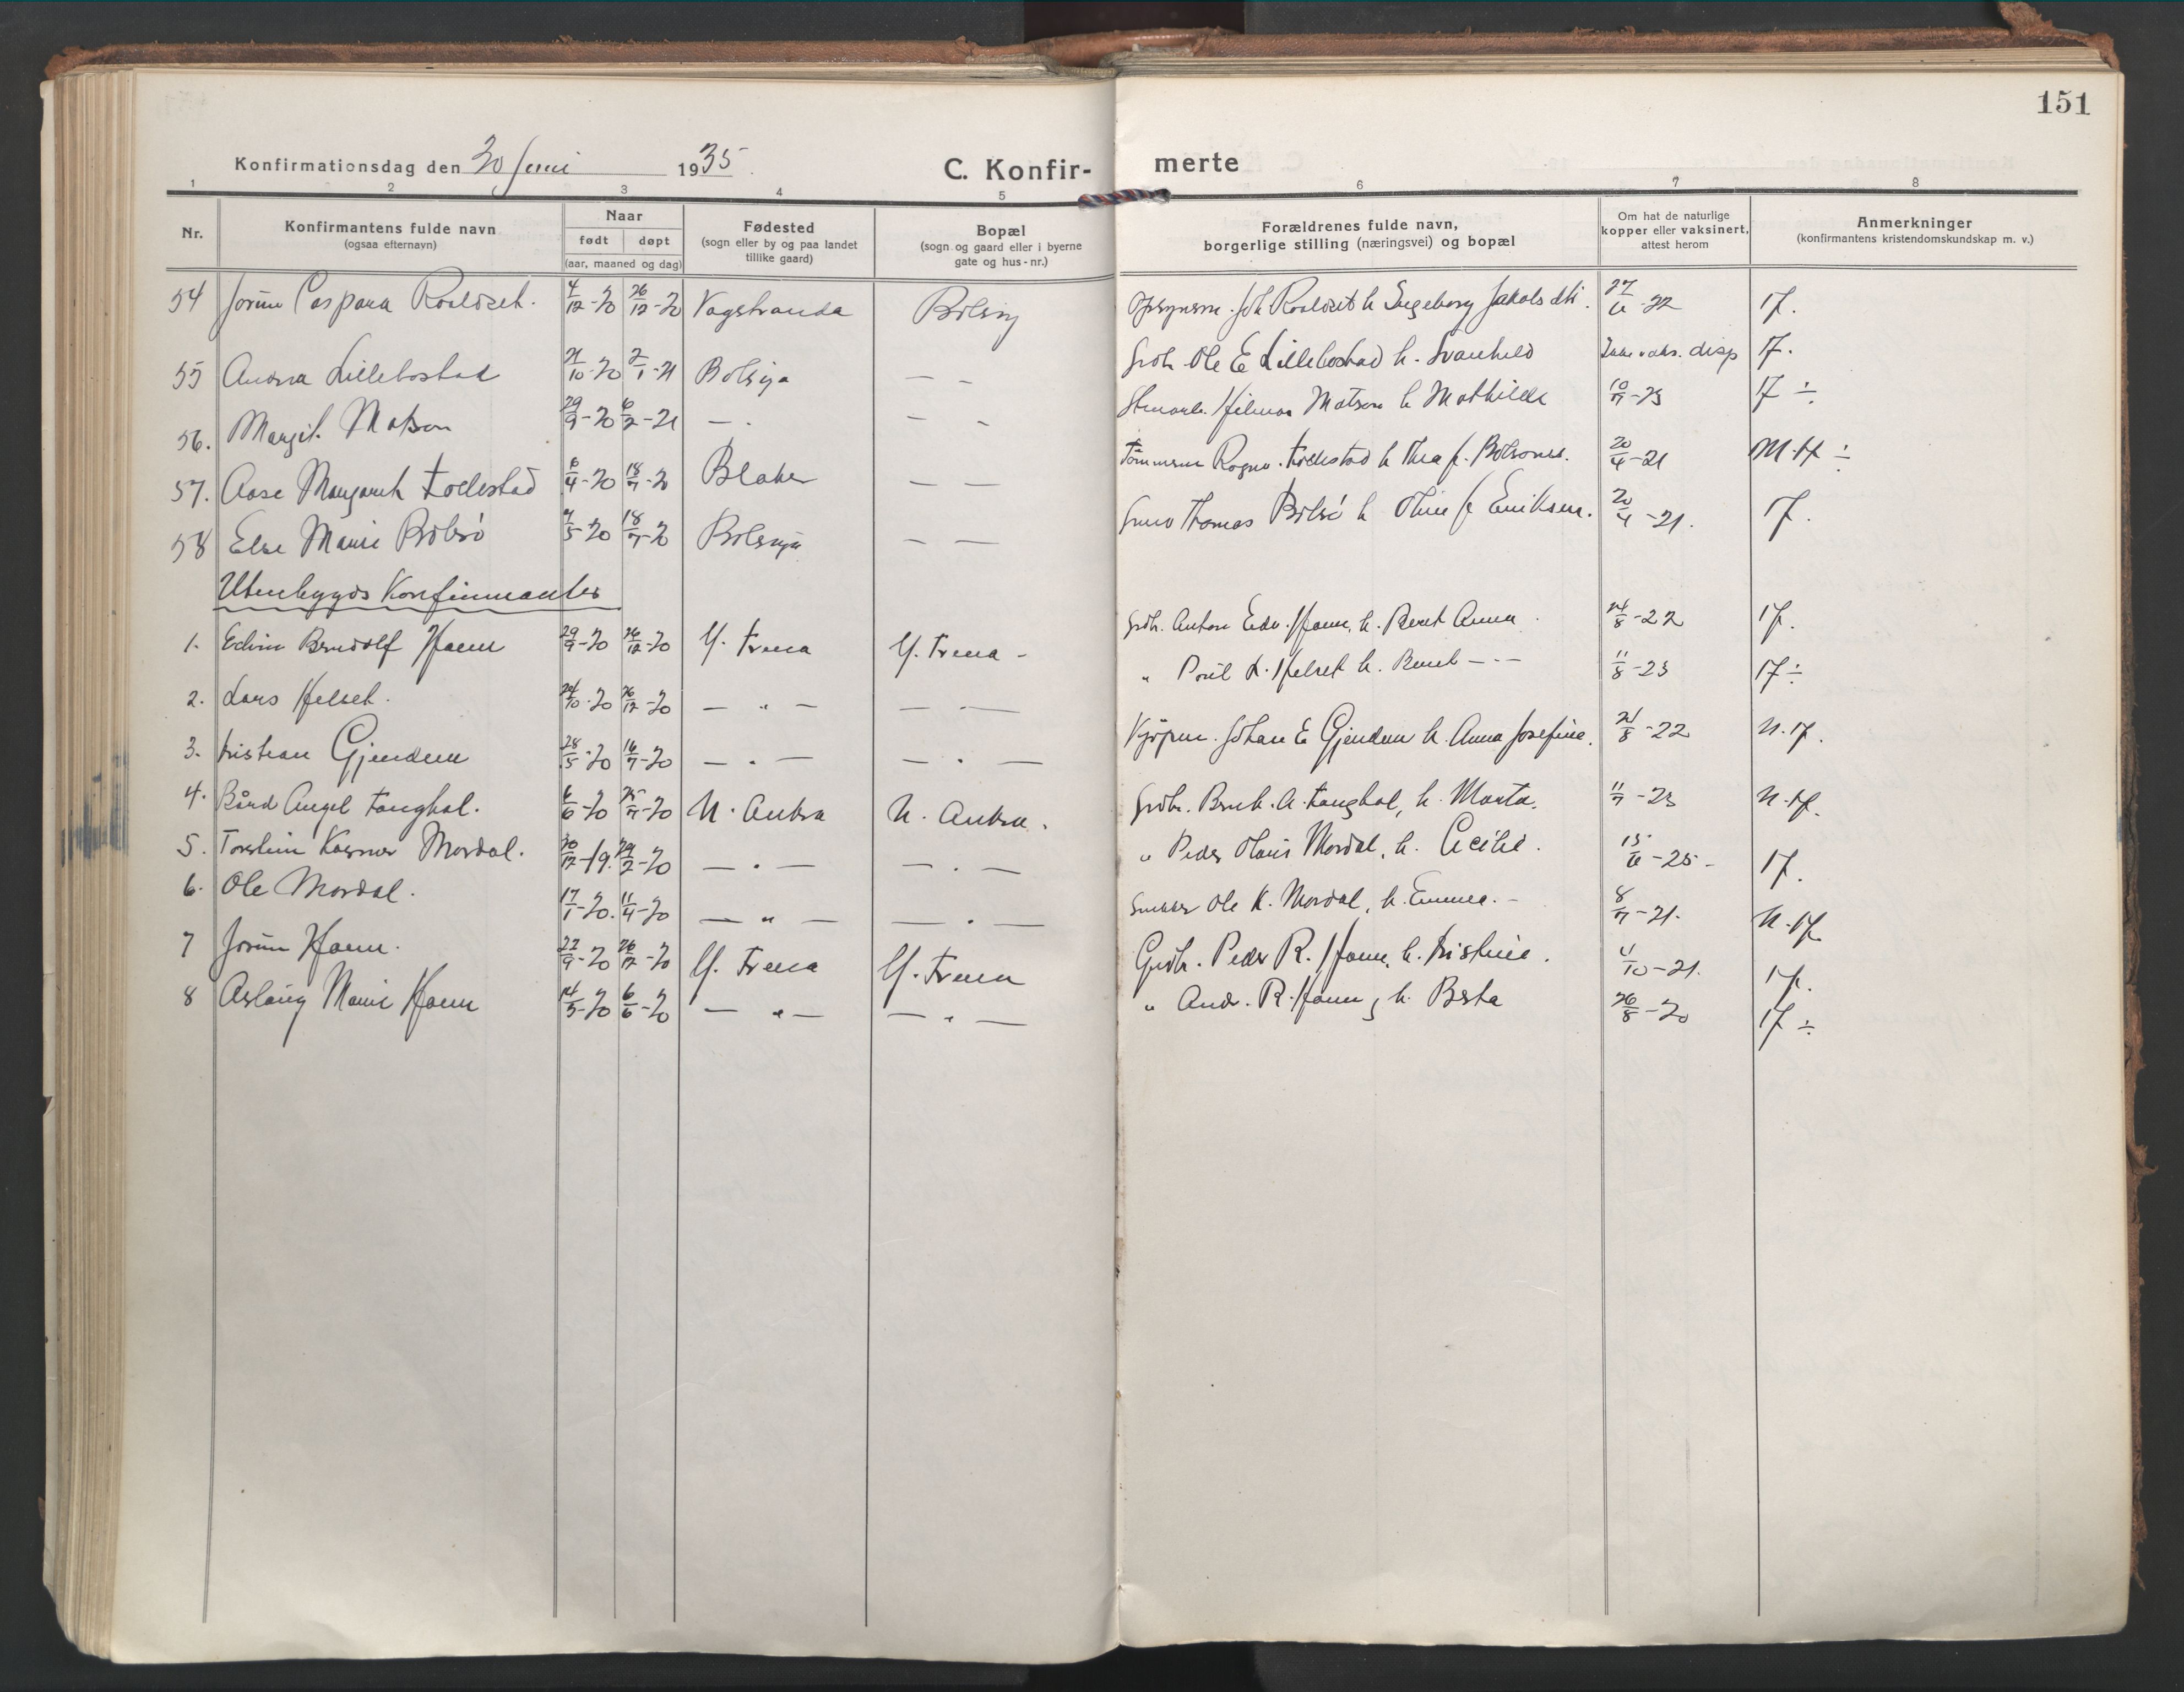 151
Konfirmationsdag den 30 Juni 1935.
C. Konfir- merte
1 2 3 4 5 6 7 8
Nr.
Konfirmantens fulde navn
(ogsaa efternavn)
Naar
født døpt
(aar, maaned og dag)
Fødested
(sogn eller by og paa landet
tillike gaard)
Bopæl
(sogn og gaard eller i byerne
gate og hus-nr.)
Forældrenes fulde navn,
borgerlige stilling (næringsvei) og bopæl
Om hat de naturlige
kopper eller vaksinert,
attest herom
Anmerkninger
(konfirmantens kristendomskundskap m. v.)
54 Jorun Caspara Roaldset. 4/12-20 26/12-20 Vagstranda Bolsøy Joh Roaldset h Ingeborg Jakobsdtr. 27/6-22 17.
55 Andrea Lillebostad 21/10-20 2/1-21 Bolsøya — - Grdbr. Ole E Lillebostad h. Svanhild Ikke vaks. disp 17.
56. Margit. Matson 29/9-20 6/2-21 — . — - Hilmar Matson h Mathilde 10/7-23 17 ÷
57. Aase Margareth Tollestad 6/4-20 18/7-20 Blaker — — Tømmerm Ragnv. Tollestad h Thea f. Bolsønes. 20/4-21 M.17 ÷
58 Else Marie Bolsø 7/5-20 18/7-20 Bolsøya — — Thomas Bolsø h Oline f Eriksen. 20/4-21. 17.
Utenbygds Konfirmanter
1. Edvin Berndolf Haem 29/9-20 26/12-20 Y. Frena Y. Frena - Grdbr. Anton Edv. Haem, h. Beret Anna 24/8-22 17.
2. Lars Helset. 24/10-20 26/12-20 — " — — · — " Poul L. Helset h. Beret — - — 11/8-23 17 ÷
3. Kristian Gjendem 28/5-20 16/7-20 — · — — · — Kjøpm. Johan E Gjendem h. Anna Josefine. 21/8-22 N. 17.
4. Bård Angel Tanghol. 6/6-20 25/7-20 N. Aukra N. Aukra. Grdbr. Bernh. A. Tanghol, h. Marta. 11/7-23 N. 17.
5. Torstein Kasper Mordal. 20/12-19. 29/2-20 — · — — · — " Peder Olaus Mordal, h. Cecilie. 15/6-25- 17.
6. Ole Mordal. 17/1-20. 11/4-20 — " — — · — Snekker Ole K. Mordal, h. Emma. - 8/7-21. N. 17.
7 Jorun Haem. 22/9-20 26/12-20 Y. Frena Y. Frena Grdbr. Peder R. Haem, h. Kristine. 4/10-21. 17.
8 Aslaug Marie Haem 14/5-20 6/6-20 — " — — " — " Andr. R. Haem, h. Berta 26/8-20 17 ÷